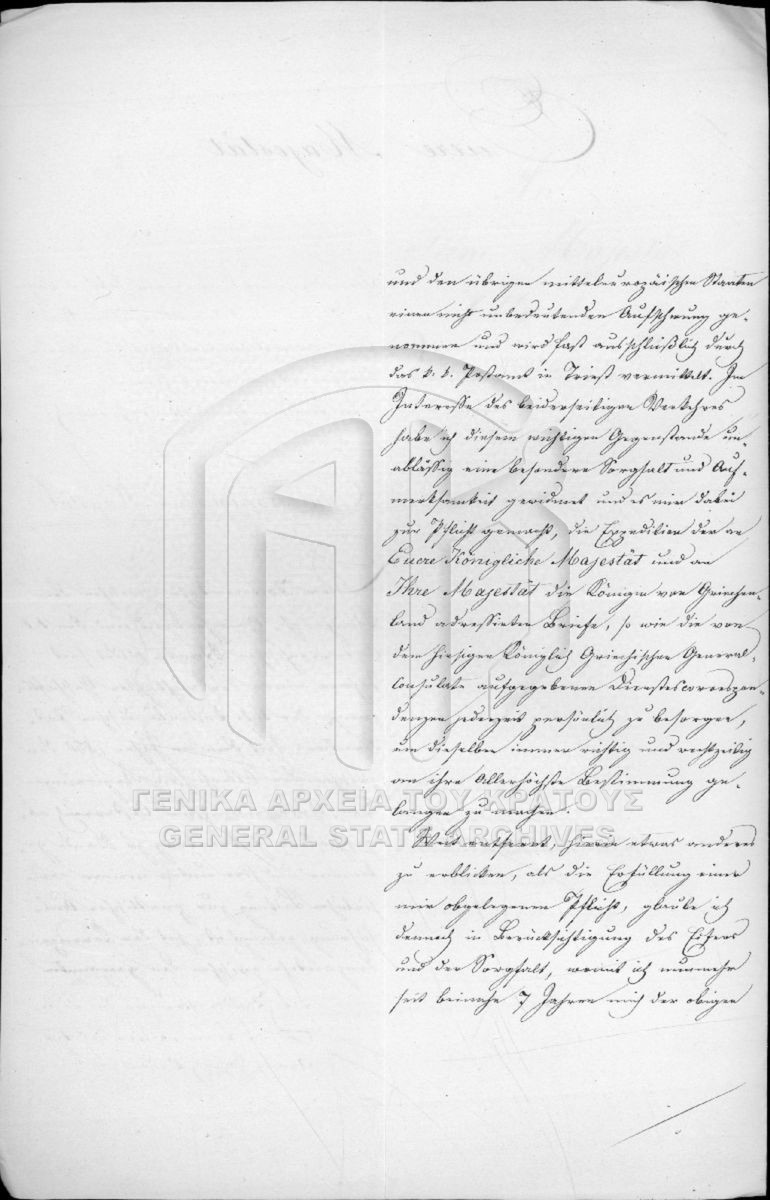 und den übrigen mitteleuropäischen Staaten
einen nicht unbedeutenden Aufschwung ge-
nommen und wird fast ausschließlich durch
das k. k. Postamt in Triest vermittelt. Im
Interesse des beiderseitigen Verkehres
habe ich diesem wichtigen Gegenstande un-
abläßig eine besondere Sorgfalt und Auf-
merksamkeit gewidmet und es mir dabei
zur Pflicht gemacht, die Expedition der an
Euere Königliche Majestät und an
Ihre Majestät die Königin von Griechen-
land adressirten Briefe, so wie die von
dem hiesigen Königlich Griechischen General-
Consulate aufgegebenen Dienstescorrespon-
denzen jederzeit persönlich zu besorgen,
um dieselben immer richtig und rechtzeitig
an ihre Allerhöchste Bestimmung ge-
langen zu machen.
ΓΕΝΙΚΑ ΑΡΧΕΙΑ ΤΟΥ ΚΡΑΤΟΥΣ
GENERAL STATE ARCHIVES
Weit entfernt, hierin etwas anderes
zu erblicken, als die Erfüllung einer
mir obgelegenen Pflicht, glaube ich
dennoch in Berücksichtigung des Eifers
und der Sorgfalt, womit ich nunmehr
seit beinahe 7 Jahren mich der obigen